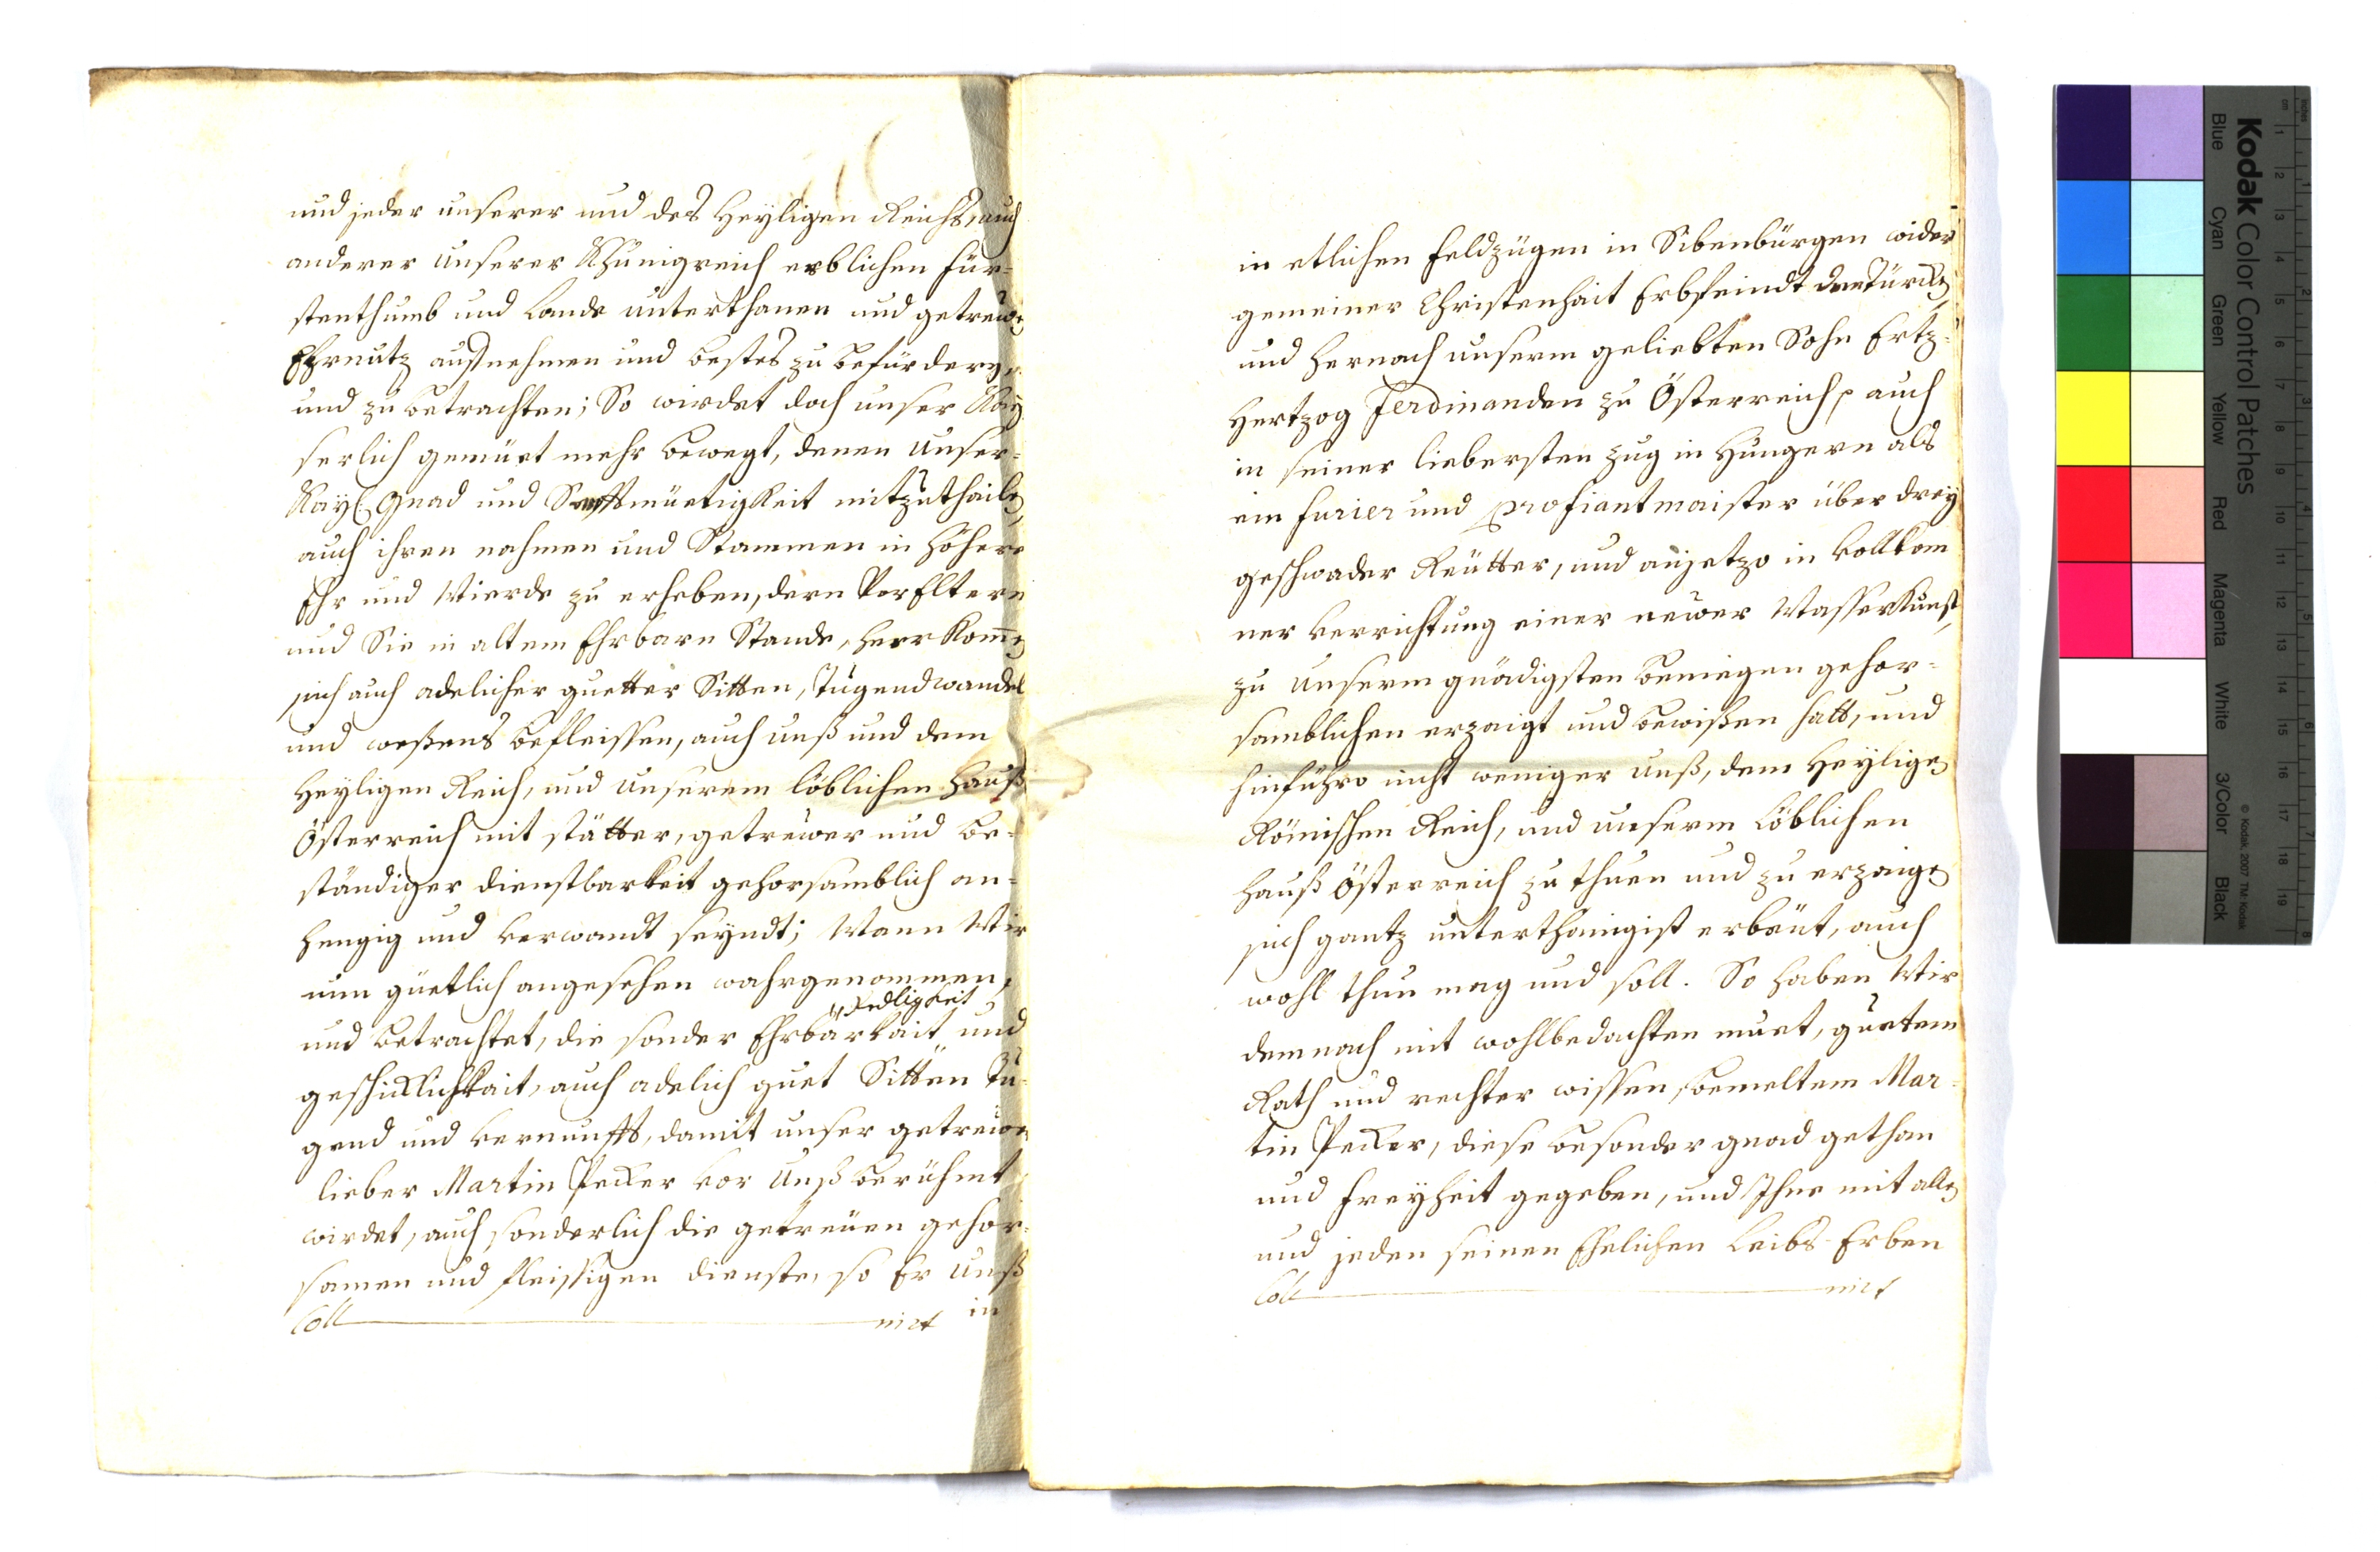 und jeder unserer und des Heyligen Reichs, auch
anderer unserer Khünigreich erblichen Für-
stenthumb und Lande unterthanen und getrewe
Ehrnutz aufnehmen und bestes zu befürdern,
und zu betrachten; So wirdet doch unser Kay
serlich gemüet mehr bewegt, denen unser-
Kayl: Gnad und Sanfftmüetigkeit mitzuthailen,
auch ihren nahmen und Stammen in höhere
Ehr und Wierde zu erheben, deren VorEltern
und Sie in altem Ehrbarn Stande, herrkommen
sich auch adelicher guetter Sitten, Tugendwandel
und weßens befleissen, auch unß und dem
Heyligen Reich, und unserem löblichen Hauß
Österreich mit stätter, getrewer und be-
ständiger dienstbarkeit gehorsamblich an-
hengig und verwandt seyndt; Wann Wir
nun güetlich angesehen wahrgenommen,
und betrachtet, die sonder Ehrbarkait, Redligkeit und
geschicklichkait, auch adelich guet Sitten Tu-
gend und vernunfft, damit unser getrewer
lieber Martin Pecker vor unß berühmt
wirdet, auch sonderlich die getreüen gehor-
samen und fleissigen dienste, so Er unß
in
Coll nirt
in etlichen Feldzügen in Sibenbürgen wider
gemeiner Christenhait Erbfeindt den Türcken,
und hernach unserm geliebten Sohn Ertz-
Hertzog Ferdinanden zu Österreich, auch
in seiner liebersten Zug in Hungern als
ein Furier und Profiantmaister über drey
geschwader Reütter, und anjetzo in vollkom
ner verrichtung einer newer Wasserkunst,
zu unserm gnädigsten beniegen gehor-
samblichen erzaigt und bewißen hatt, und
hinführo nicht weniger unß, dem Heyligen
Römischen Reich, und unserm Löblichen
Hauß Österreich zu thuen und zu erzaigen
sich gantz unterthänigist erbeüt, auch
wohl thun mag und soll. So haben Wir
demnach mit wohlbedachten muet, guetem
Rath und rechter wissen, bemeltem Mar-
tin Pecker, diese besonder gnad gethan
und Freyheit gegeben, und Ihne mit allen
und jeden seinen Ehelichen Leibs-Erben
Coll nirt
Kodak Color Control Patches
Blue Cyan Green Yellow Red Magenta White 3/Color Black
© Kodak, 2007 TM: Kodak
cm 1 2 3 4 5 6 7 8 9 10 11 12 13 14 15 16 17 18 19
inches 1 2 3 4 5 6 7 8